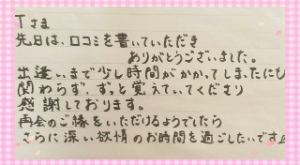 Tさま
先日は、口コミを書いていただき
ありがとうございました。
出逢いまで少し時間がかかてしまたにも
関わらず、ずっと覚えていてくださり
感謝しております。
再会のご縁をいただけるようでしたら
さらに深い欲情のお時間を過ごしたいです